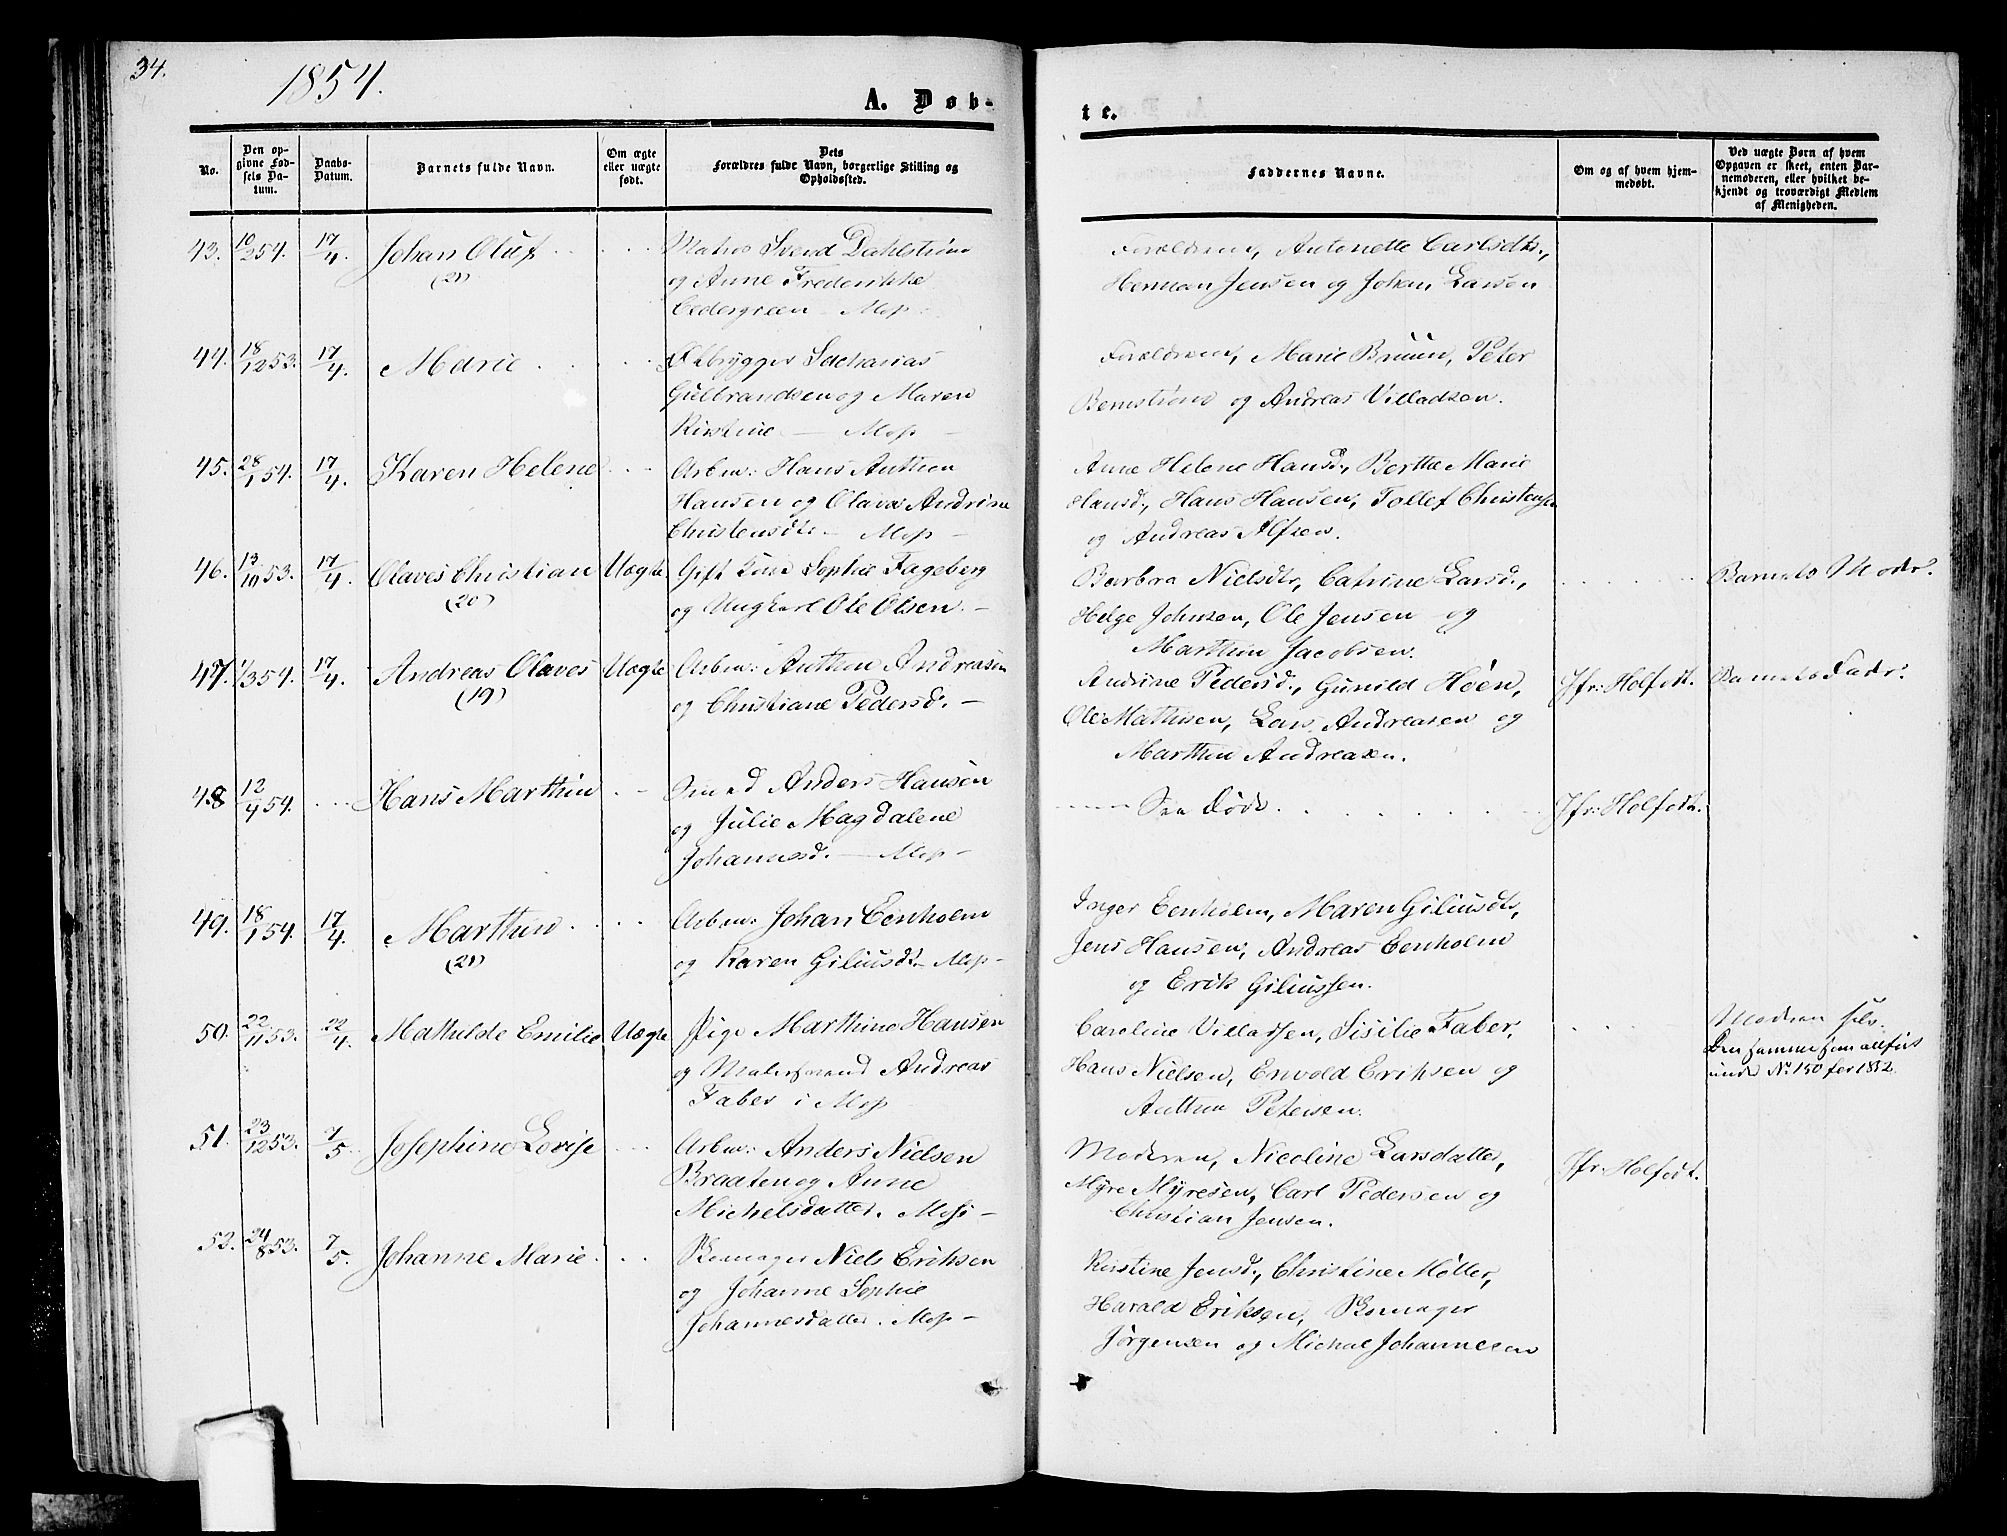 34.
1854.
A. Døb-
te.
No.
Den op-
givne Fød-
sels Da-
tum.
Daabs-
Datum.
Barnets fulde Navn.
Om ægte
eller uægte
født.
Dets
Forældres fulde Navn, borgerlige Stilling og
Opholdssted.
Faddernes Navne.
Om og af hvem hjem-
medøbt.
Ved uægte Børn af hvem
Opgaven er skeet, enten Bar-
nemoderen, eller hvilket be-
kjendt og troværdigt Medlem
af Menigheden.
43. 10/2 54. 17/4. Johan Oluf
(21)
Matros Svend Dahlstrøm
og Anne Frederikke
Cedergreen - Mos
Forældrene, Antonette Carlsdtr.,
Herman Jensen og Johan Larsen
44. 18/12 53. 17/4. Marie
Flbrygger Sacharias
Gulbrandsen og Maren
Kirstine - Mos -
Forældrene, Marie Bruun, Peter
Bernstrøm og Andreas Villadsen.
45. 28/1 54. 17/4. Karen Helene
Arbm: Hans Anthon
Hansen og Olava Andrine
Christensdtr - Mos -
Anne Helene Hansd., Berthe Marie
Hansd., Hans Hansen, Tollef Christensen
og Andreas Alfsen.
46. 13/10 53. 17/4. Olaves Christian Uægte
(20)
Gift Kone Sophie Fageberg
og Ungkarl Ole Olsen. -
Barbra Nielsdtr, Catrine Larsd.,
Helge Johnsen, Ole Jensen og
Marthin Jacobsen.
Barnets Moder.
47. 1/3 54. 17/4. Andreas Olaves Uægte
(19)
Arbm: Anthon Andreasen
og Christiane Pedersd. -
Andrine Pedersd., Gunild Høen,
Ole Mathisen, Lars Andreasen og
Marthin Andreasen.
Jfr: Holfedt.
Barnets Fader.
48 12/4 54. Hans Marthin
Smed Anders Hansen
og Julie Magdalene
Johannesd. - Mos -
Døde.
Jfr: Holfedt.
49. 18/1 54. 17/4. Marthin
(21)
Arbm: Johan Eenholm
og Karen Giliusdt. - Mos -
Inger Eenholm, Maren Giliusdtr,
Jens Hansen, Andreas Eenholm
og Erik Giliussen.
50. 22/11 53. 22/4. Mathilde Emilie Uægte
Pige Marthine Hansen
og Malersvend Andreas
Faber i Mos
Caroline Villadsen, Sisilie Faber,
Hans Nielsen, Envold Eriksen og
Anthon Petersen.
Moderen selv.
Den samme som anført
under No. 150 for 1852.
51. 23/12 53. 7/5. Josephine Lovise
Arbm: Anders Nielsen
Braaten og Anne
Michelsdatter. Moss -
Moderen, Nicoline Larsdatter,
Myre Myresen, Carl Pedersen og
Christian Jensen.
Jfr: Holfedt.
52. 24/8 53. 7/5. Johanne Marie
Skomager Niels Eriksen
og Johanne Sophie
Johannesdatter. Mos -
Kirstine Jensd., Christine Møller,
Harald Eriksen, Skomager
Jørgensen og Michael Johannesen